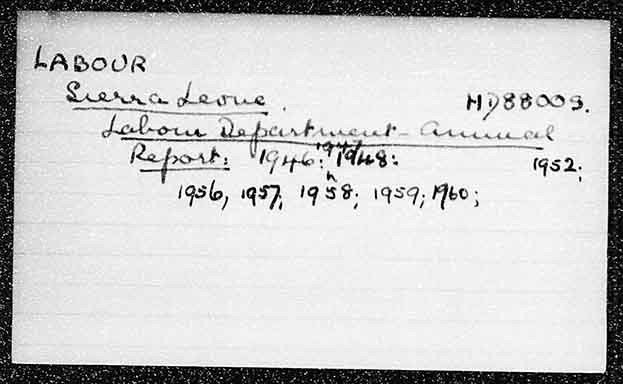 LABOUR
Sierra Leone. HD8800S.
Labour Department - Annual
Report: 1946: 1947 1948: 1952;
1956, 1957, 1958; 1959; 1960;